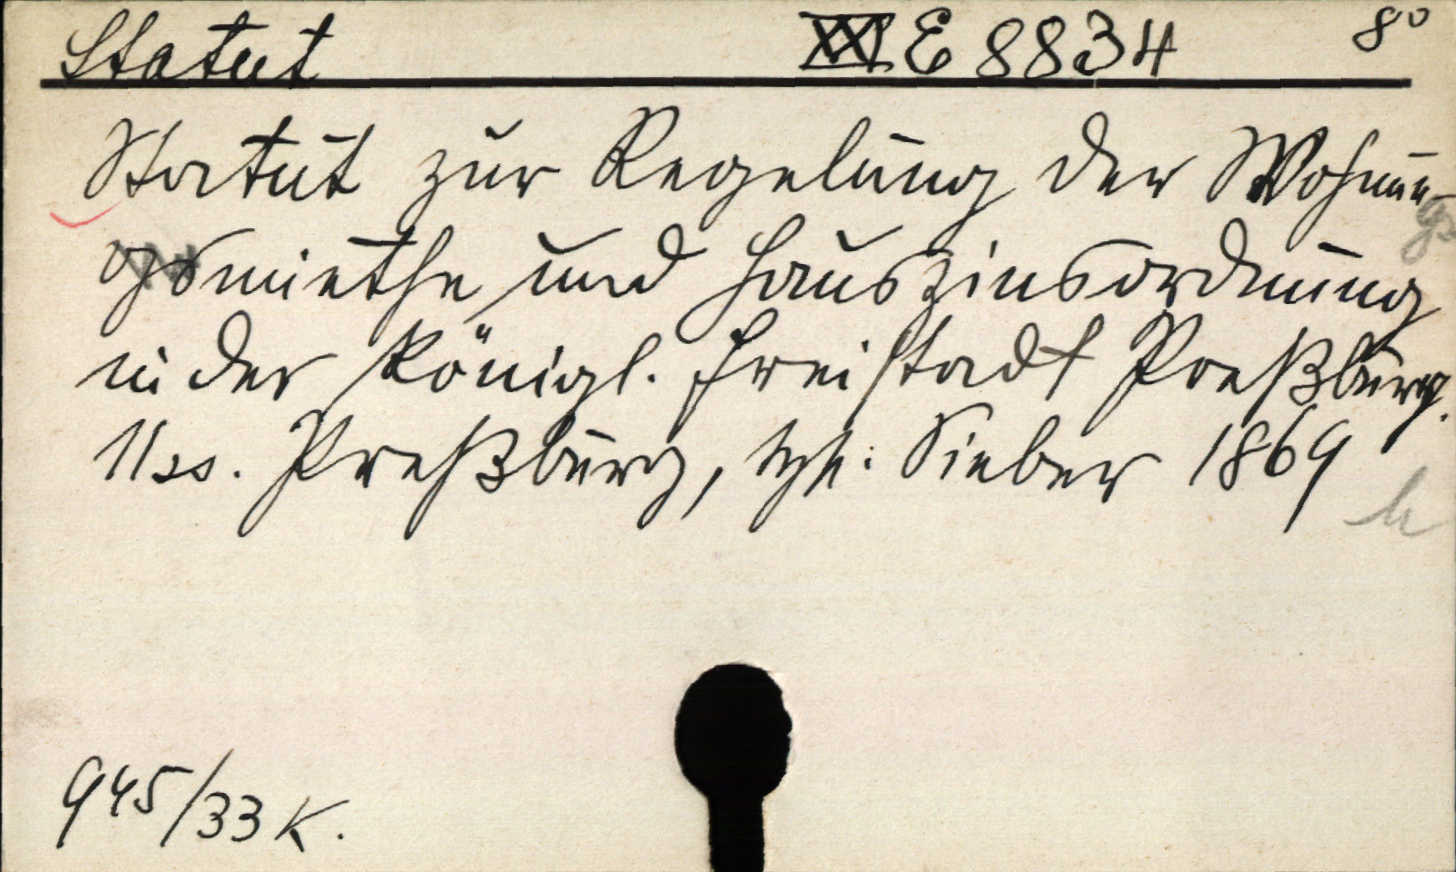 Statut XXI E 8834 8°
Statut zur Regelung der Wohnun-
gsmiethe und Hauszinsordnung
in der königl. Freistadt Preßburg.
11 ss. Preßburg, typ: Sieber 1869
945/33 K.